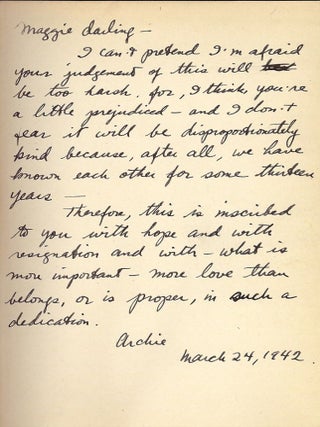 Maggie darling —
I can't pretend I'm afraid
your judgement of this will
be too harsh, for, I think, you're
a little prejudiced — and I don't
fear it will be disproportionately
kind because, after all, we have
known each other for some thirteen
years —
Therefore, this is inscribed
to you with hope and with
resignation and with — what is
more important — more love than
belongs, or is proper, in such a
dedication.
Archie
March 24, 1942.